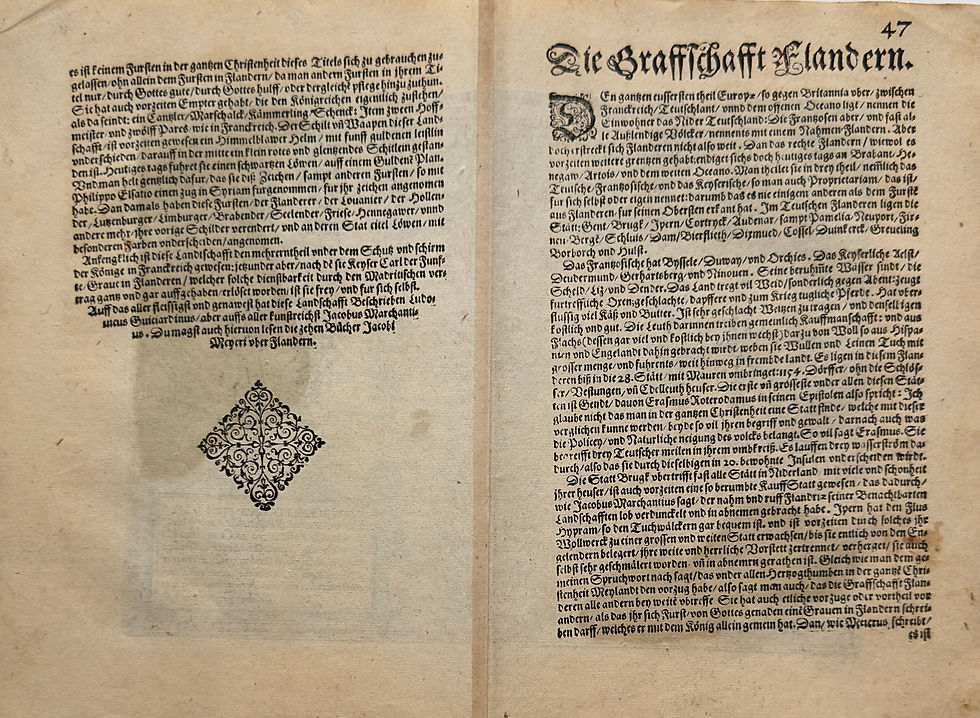 47
Die Graffschafft Flandern.
DEn gantzen eussersten theil Europæ/ so gegen Britannia vber/ zwischen
Franckreich/ Teutschlant/ vnnd dem offenen Oceano ligt/ nennen die
Einwohner das Nider Teutschland: Die Frantzosen aber/ und fast al-
le Außlendige Völcker/ nennents mit einem Nahmen Flandern. Aber
doch erstreckt sich Flanderen nicht also weit. Dan das rechte Flandern/ wiewol es
vorzeiten weitere grentzen gehabt: endiget sichs doch heutiges tags an Brabant/ He-
negaw/ Artois/ und dem weiten Oceano. Man theilet sie in drey theil/ nemlich das
Teutsche/ Frantzosische/ und das Keyserische/ so man auch Proprietariam/ das ist/
fur sich selbst oder eigen nennet: darumb das es nie einigem anderen als dem Furstē
aus Flanderen/ fur seinen Obersten erkant hat. Im Teutschen Flanderen ligen die
Stätt; Gent/ Brugk/ Jpern/ Cortryck/ Audenar/ sampt Pamelia/ Neuport/ Fir-
neu/ Bergē/ Schluis/ Dam/ Bierflieth/ Dixmued/ Cassel/ Duinkerck/ Greueling
Borborch und Hulst.
Das Frantzosische hat Ryssele/ Duway/ und Orchies. Das Keyserliche Aelst/
Deudermund/ Gerhartsberg/ und Ninouen. Seine beruhmte Wasser sindt/ die
Scheld/ Liz/ und Dender. Das Land tregt vil Weid/ sonderlich gegen Abent: zeugt
furtreffliche Oxen: geschlachte/ dapffere und zum Krieg tugliche Pferde. Hat vber-
flussig viel Käß und Butter. Ist sehr geschlacht Weitzen zu tragen/ und denselligen
kostlich und gut. Die Leuth darinnen treiben gemeinlich Kauffmanschafft: und aus
Flachs (dessen gar viel und kostlich bey jhnen wechst) dar zu von Woll so aus Hispa-
nien und Engelandt dahin gebracht wirdt/ weben sie Wullen und Leinen Tuch mit
grosser menge/ und fuhrents/ weit hinweg in frembde landt. Es ligen in diesem Flan-
deren biß in die 28. Stätt/ mit Mauren vmbringet: 1154. Dörffer/ ohn die Schlös-
ser/ Vestungen/ uñ Edelleuth heuser. Die erste uñ grösseste vnder allen diesen Stät-
ten ist Gendt/ dauon Erasmus Roterodamus in seinen Epistolen also spricht: Ich
glaube nicht das man in der gantzen Christenheit eine Statt finde/ welche mit dieser
verglichen kunne werden/ beyde so vil ihren begriff und gewalt/ darnach auch was
die Policey/ und Naturliche neigung des volcks belangt. So vil sagt Erasmus. Sie
begreifft drey Teutscher meilen in ihrem vmbkreiß. Es lauffen drey wasserström da-
durch/ also das sie durch dieselbigen in 20. bewohnte Insulen vnderscheiden wirdt.
Die Statt Brugk vbertrifft fast alle Stätt in Niderland/ mit viele und schonheit
jhrer heuser/ ist auch vorzeiten eine so berumbte Kauff Statt gewesen/ das dadurch/
wie Jacobus Marchantius sagt/ der nahm und ruff Flandriæ seiner Benachbarten
Landschafften lob verdunckelt und in abnemen gebracht habe. Jpern hat den Flus
Hypram/ so den Tuchwälckern gar bequem ist. und ist vorzeiten durch solches jhr
Wollwerck zu einer grossen und weiten Statt erwachsen/ bis sie entlich von den En-
gelendern belegert/ ihre weite und herrliche Vorstett zertrennet/ verherget/ sie auch
selbst sehr geschmälert worden/ uñ in abnemen gerathen ist. Gleich wie man dem ge-
meinen Spruchwort nach sagt/ das vnder allen Hertzogthumben in der gantzē Chri-
stenheit Meylandt den vorzug habe/ also sagt man auch/ das die Graffschafft Flan-
deren alle andern bey weitē vbtreffe. Sie hat auch etliche vorzuge oder vortheil vor
andern/ als das ihr sich Furst/ von Gottes genaden einē Grauen in Flandern schrei-
ben darff/ welches er mit dem König allein gemein hat. Dan/ wie Meierus schreibt/
es ist
es ist keinem Fursten in der gantzen Christenheit dieses Titels sich zu gebrauchen zu-
gelassen/ ohn allein dem Fursten in Flandern/ da man andern Fursten in ihrem Ti-
tel nur/ durch Gottes gute/ durch Gottes hulff/ oder dergleichē pflege hinzu zuthun.
Sie hat auch vorzeiten Empter gehabt/ die den Königreichen eigentlich zustehen/
als da seindt: ein Cantzler/ Marschalck/ Kämmerling/ Schenck: Item zween Hoff-
meister/ und zwölff Pares/ wie in Franckreich. Der Schilt uñ Wapen dieser Land-
schafft/ ist vorzeiten gewesen ein Himmelblawer Helm/ mit kunst guldenen leistlin
vnderschieden/ darauff in der mitte ein klein rotes und glentzendes Schiltlein gestan-
den ist. Heutiges tags fuhret sie einen schwartzen Löwen/ auff einem Guldenē Plan.
Und man helt gentzlich dafur/ das sie diß Zeichen/ sampt anderen Fursten/ so mit
Philippo Elsatio einen zug in Syriam furgenommen/ fur ihr zeichen angenomen
habe. Dan damals haben diese Fursten/ der Flanderer/ der Louanier/ der Hollen-
der/ Lutzenburger/ Limburger/ Brabender/ Seelender/ Friese/ Hennegawer/ vnnd
andere mehr/ ihre vorige Schilter verendert/ und an deren Stat eitel Löwen/ mit
besonderen Farben vnderscheiden/ angenomen.
Anfengklich ist diese Landschafft den mehrern theil vnder dem Schutz und schirm
der Könige in Franckreich gewesen: jetzunder aber/ nach dē sie Keyser Carl der Funff-
te/ Graue in Flanderen/ welcher solche dienstbarkeit durch den Madritischen ver-
trag gantz und gar auffgehaben/ erlöset worden/ ist sie frey/ und fur sich selbst.
Auff das aller fleissigst und genawest hat diese Landschafft Beschrieben Ludo-
uicus Guicciardinus/ aber auffs aller kunstreichst Jacobus Marchanti-
us. Du magst auch hieruon lesen die zehen Bücher Jacobi
Meyeri vber Flandern.